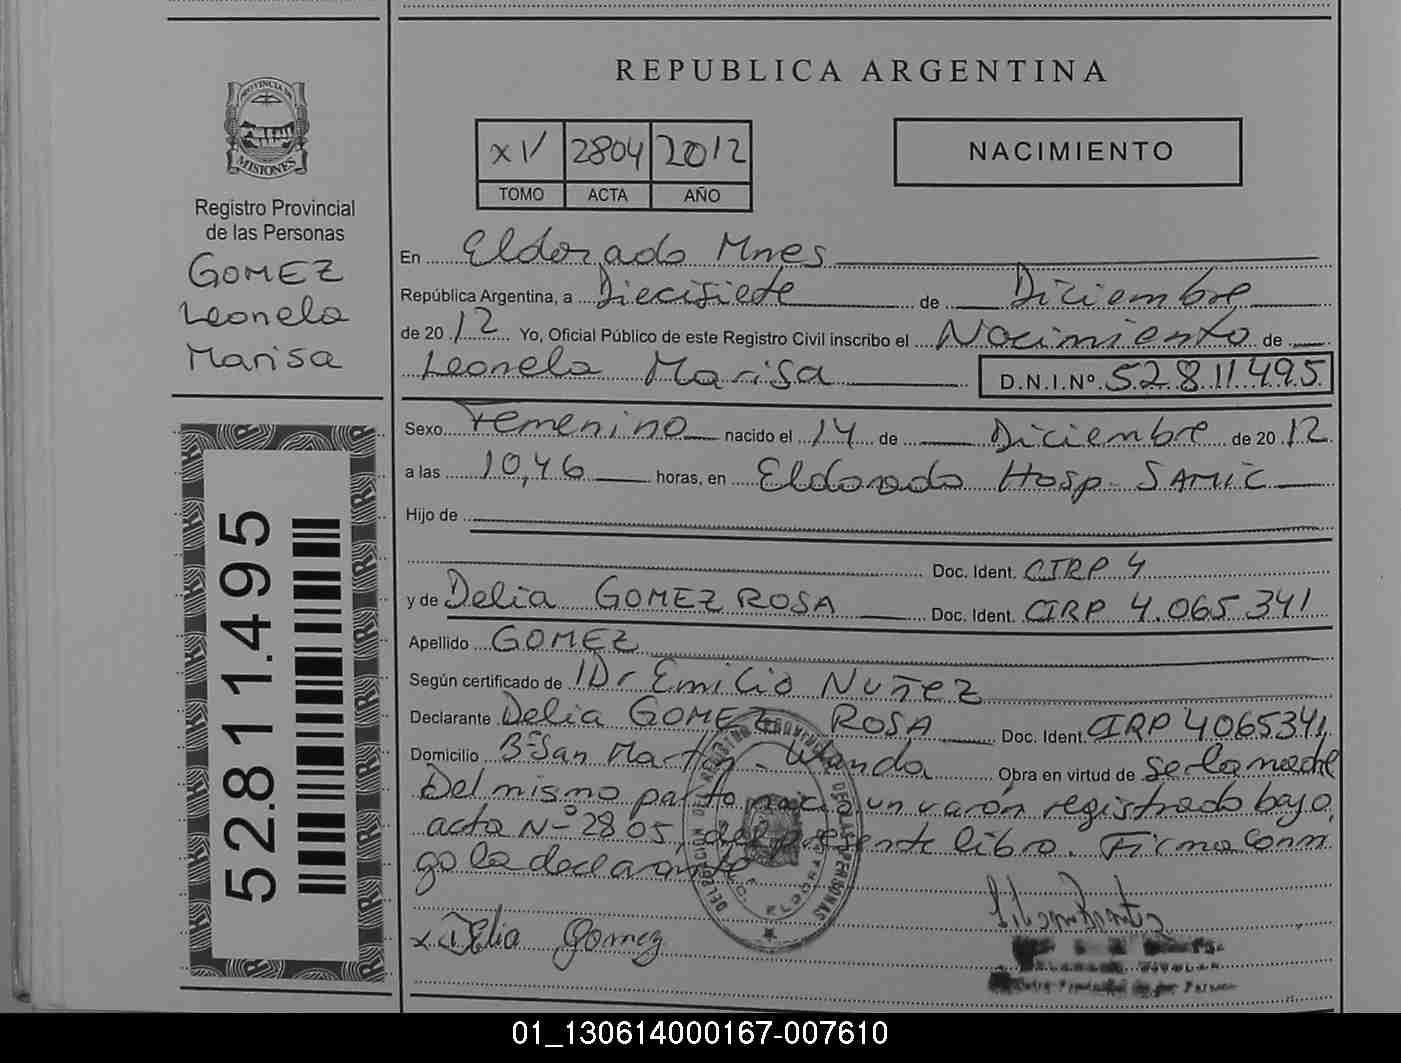 PROVINCIA DE
MISIONES
Registro Provincial
de las Personas
GOMEZ
Leonela
Marisa
52.811.495
REPUBLICA ARGENTINA
XV 2804 2012
TOMO ACTA AÑO
NACIMIENTO
En Eldorado Mnes
República Argentina, a Diecisiete de Diciembre
de 2012 Yo, Oficial Público de este Registro Civil inscribo el Nacimiento de
Leonela Marisa D.N.I.Nº. 52811495
Sexo Femenino nacido el 14 de Diciembre de 2012
a las 10,46 horas, en Eldorado Hosp. SAMIC
Hijo de
Doc. Ident. CIRP 4
y de Delia GOMEZ ROSA Doc. Ident. CIRP 4.065.341
Apellido GOMEZ
Según certificado de Dr Emilio Nuñez
Declarante Delia GOMEZ ROSA Doc. Ident. CIRP 4065341,
Domicilio Bº San Martín - Wanda Obra en virtud de ser la madre
Del mismo parto nació un varón registrado bajo
acta Nº 2805, del presente libro. Firma conm
go la declarante
x Delia Gomez
01_130614000167-007610